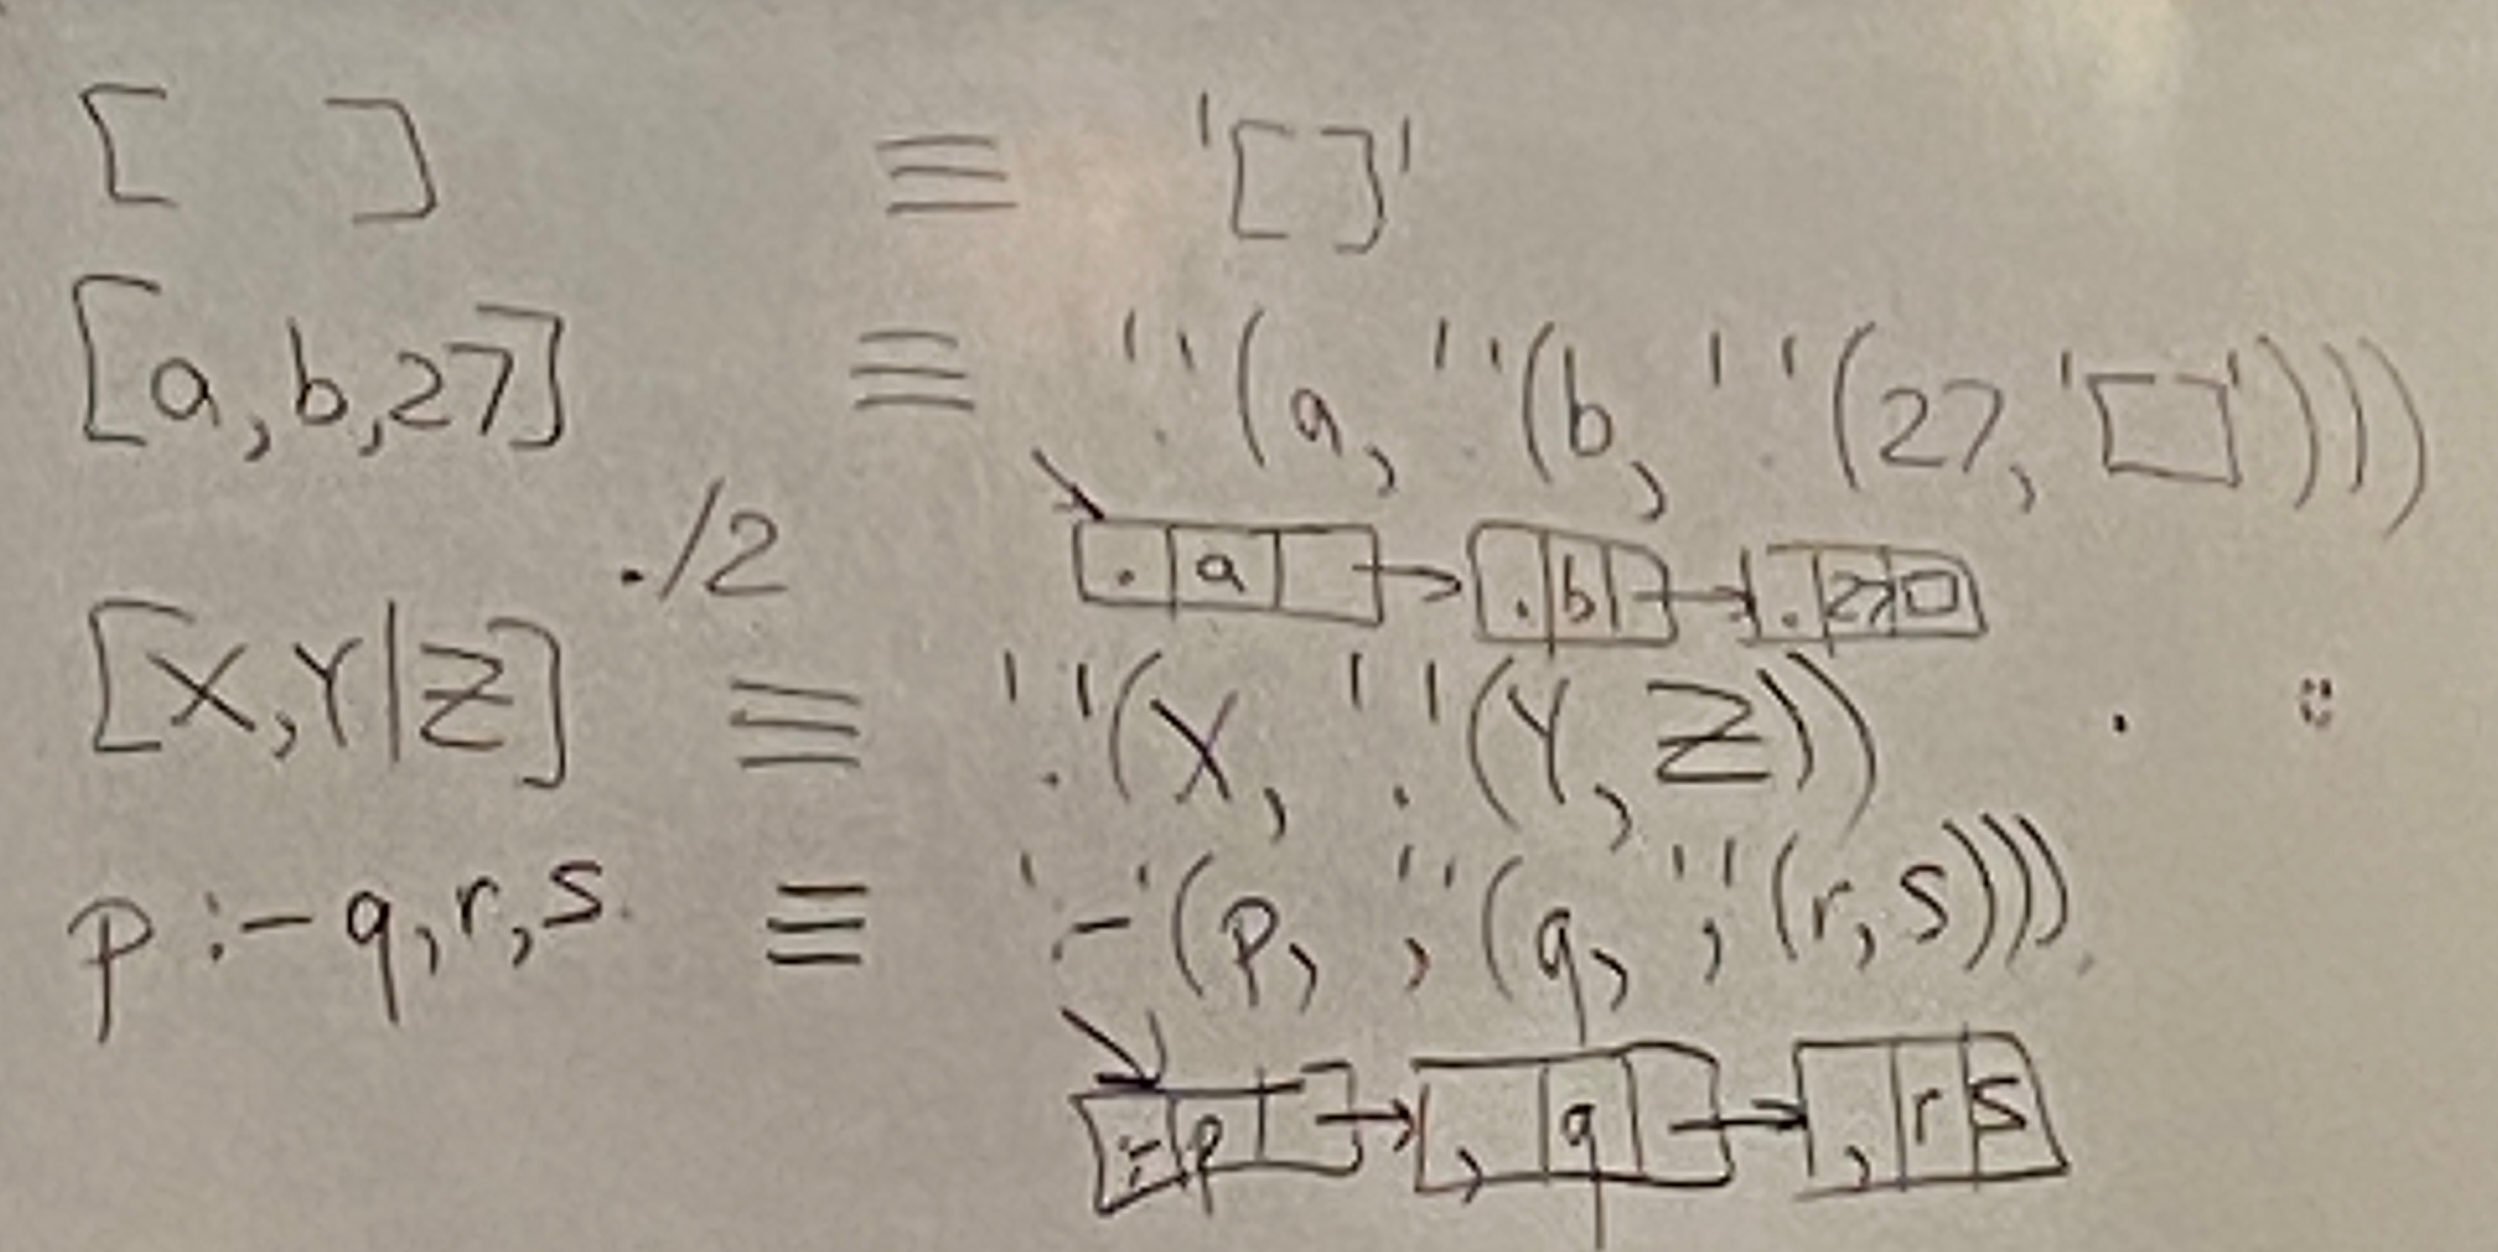 [ ] ≡ '[]'
[a,b,27] ≡ '.'(a, '.'(b, '.'(27,'[]')))
./2
. a . b . 27 []
[X,Y|Z] ≡ '.'(X, '.'(Y,Z))
p :- q,r,s. ≡ ':-'(p, ','(q, ','(r,s))).
:- p , q , r s